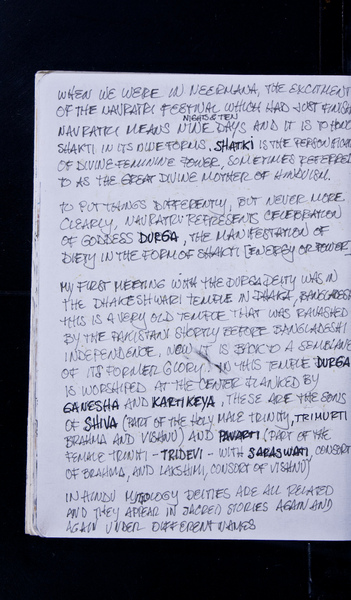 WHEN WE WERE IN NEEMRANA, THE EXCITMENT
OF THE NAVRATRI FESTIVAL WHICH HAD JUST FINISH
NIGHTS & TEN
NAVRATRI MEANS NINE DAYS AND IT IS TO HONO
SHAKTI IN ITS NINE FORMS. SHATKI IS THE PERSONIFICA
OF DIVINE FEMININE POWER, SOMETIMES REFERRED
TO AS THE GREAT DIVINE MOTHER OF HINDUISM.
TO PUT THINGS DIFFERENTLY, BUT NEVER MORE
CLEARLY, NAVRATRI REPRESENTS CELEBRATION
OF GODDESS DURGA, THE MANIFESTATION OF
DIETY IN THE FORM OF SHAKTI [ENERGY OR POWER]
MY FIRST MEETING WITH THE DURGA DEITY WAS IN
THE DHAKESHWARI TEMPLE IN DHAKA, BANGLADESH
THIS IS A VERY OLD TEMPLE THAT WAS RAVASHED
BY THE PAKISTANI SHORTLY BEFORE BANGLADESHI
INDEPENDENCE. NOW IT IS BACK TO A SEMBLANE
OF ITS FORMER GLORY. IN THIS TEMPLE DURGA
IS WORSHIPED AT THE CENTER FLANKED BY
GANESHA AND KARTIKEYA. THESE ARE THE SONS
OF SHIVA (PART OF THE HOLY MALE TRINITY, TRIMURTI
BRAHMA AND VISHNU) AND PAVARTI (PART OF THE
FEMALE TRINITI - TRIDEVI - WITH SARASWATI, CONSORT
OF BRAHMA, AND LAKSHIMI, CONSORT OF VISHNU)
IN HINDU MYTOLOGY DEITIES ARE ALL RELATED
AND THEY APPEAR IN SACRED STORIES AGAIN AND
AGAIN UNDER DIFFERENT NAMES